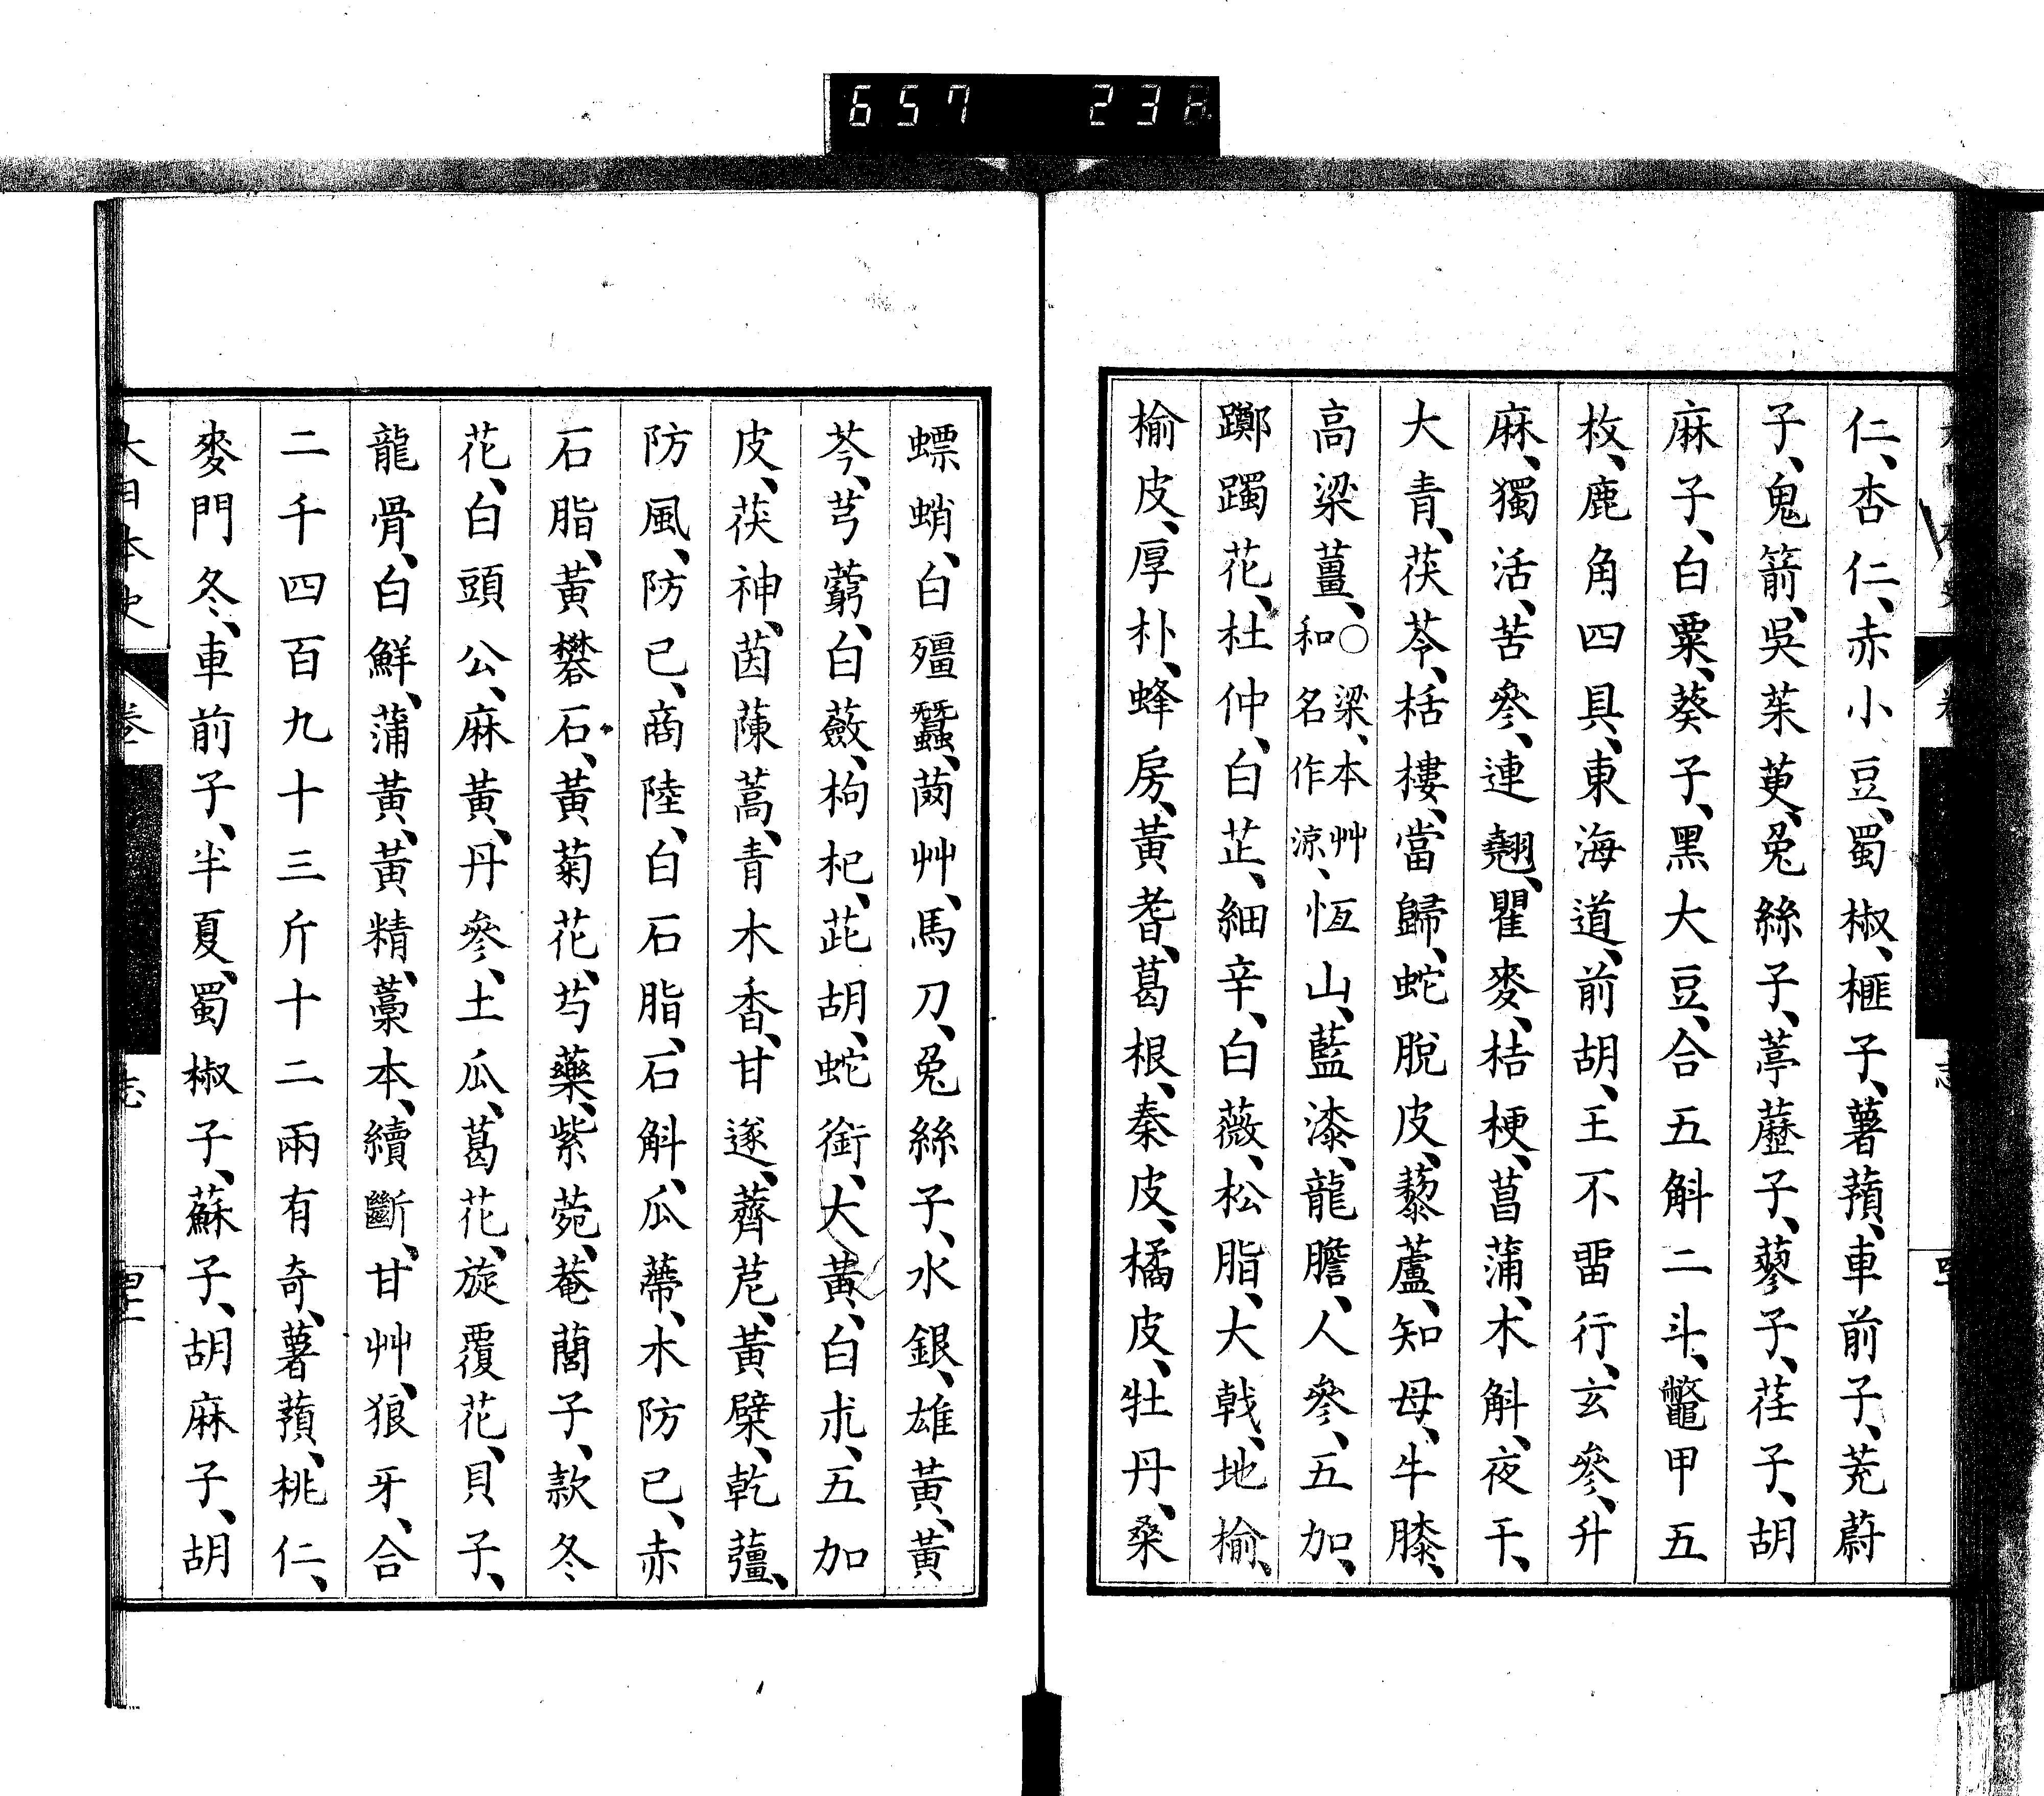 657 238
仁、杏仁、赤小豆、蜀椒、榧子、薯蕷、車前子、茺蔚
子、鬼箭、吳茱萸、兔絲子、葶藶子、蓼子、荏子、胡
麻子、白粟、葵子、黑大豆、合五斛二斗、鼈甲五
枚、鹿角四具、東海道、前胡、王不畱行、玄參、升
麻、獨活、苦參、連翹、瞿麥、桔梗、菖蒲、木斛、夜干、
大青、茯苓、栝樓、當歸、蛇脫皮、藜蘆、知母、牛膝、
高梁薑、○梁、本艸和名作涼、恆山、藍漆、龍膽、人參、五加、
躑躅花、杜仲、白芷、細辛、白薇、松脂、大戟、地榆、
榆皮、厚朴、蜂房、黃耆、葛根、秦皮、橘皮、牡丹、桑
螵蛸、白殭蠶、茵艸、馬刀、兔絲子、水銀、雄黃、黃
芩、芎藭、白蘞、枸杞、茈胡、蛇銜、大黃、白朮、五加
皮、茯神、茵蔯蒿、青木香、甘遂、薺苨、黃檗、乾薑、
防風、防已、商陸、白石脂、石斛、瓜蔕、木防已、赤
石脂、黃礬石、黃菊花、芍藥、紫菀、菴䕡子、款冬
花、白頭公、麻黃、丹參、土瓜、葛花、旋覆花、貝子、
龍骨、白鮮、蒲黃、黃精、藁本、續斷、甘艸、狼牙、合
二千四百九十三斤十二兩有奇、薯蕷、桃仁、
麥門冬、車前子、半夏、蜀椒子、蘇子、胡麻子、胡
大日本史 志